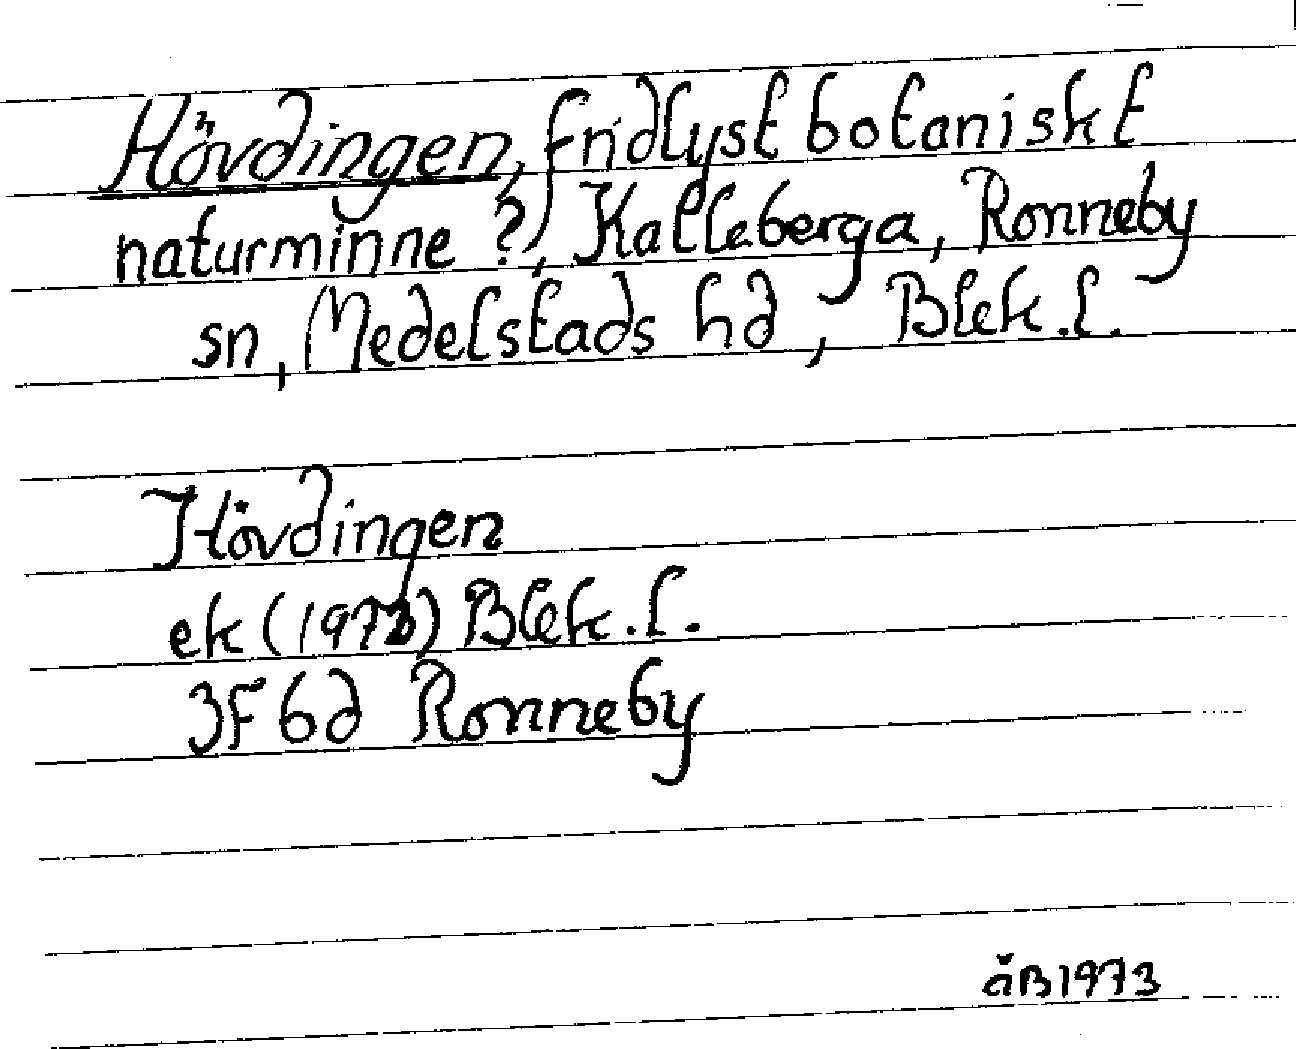 Hövdingen, fridlyst botaniskt
naturminne ?, Kalleberga, Ronneby
sn, Medelstads hd, Blek.l.
Hövdingen
ek (1973) Blek.l.
3F6d Ronneby
åB1973